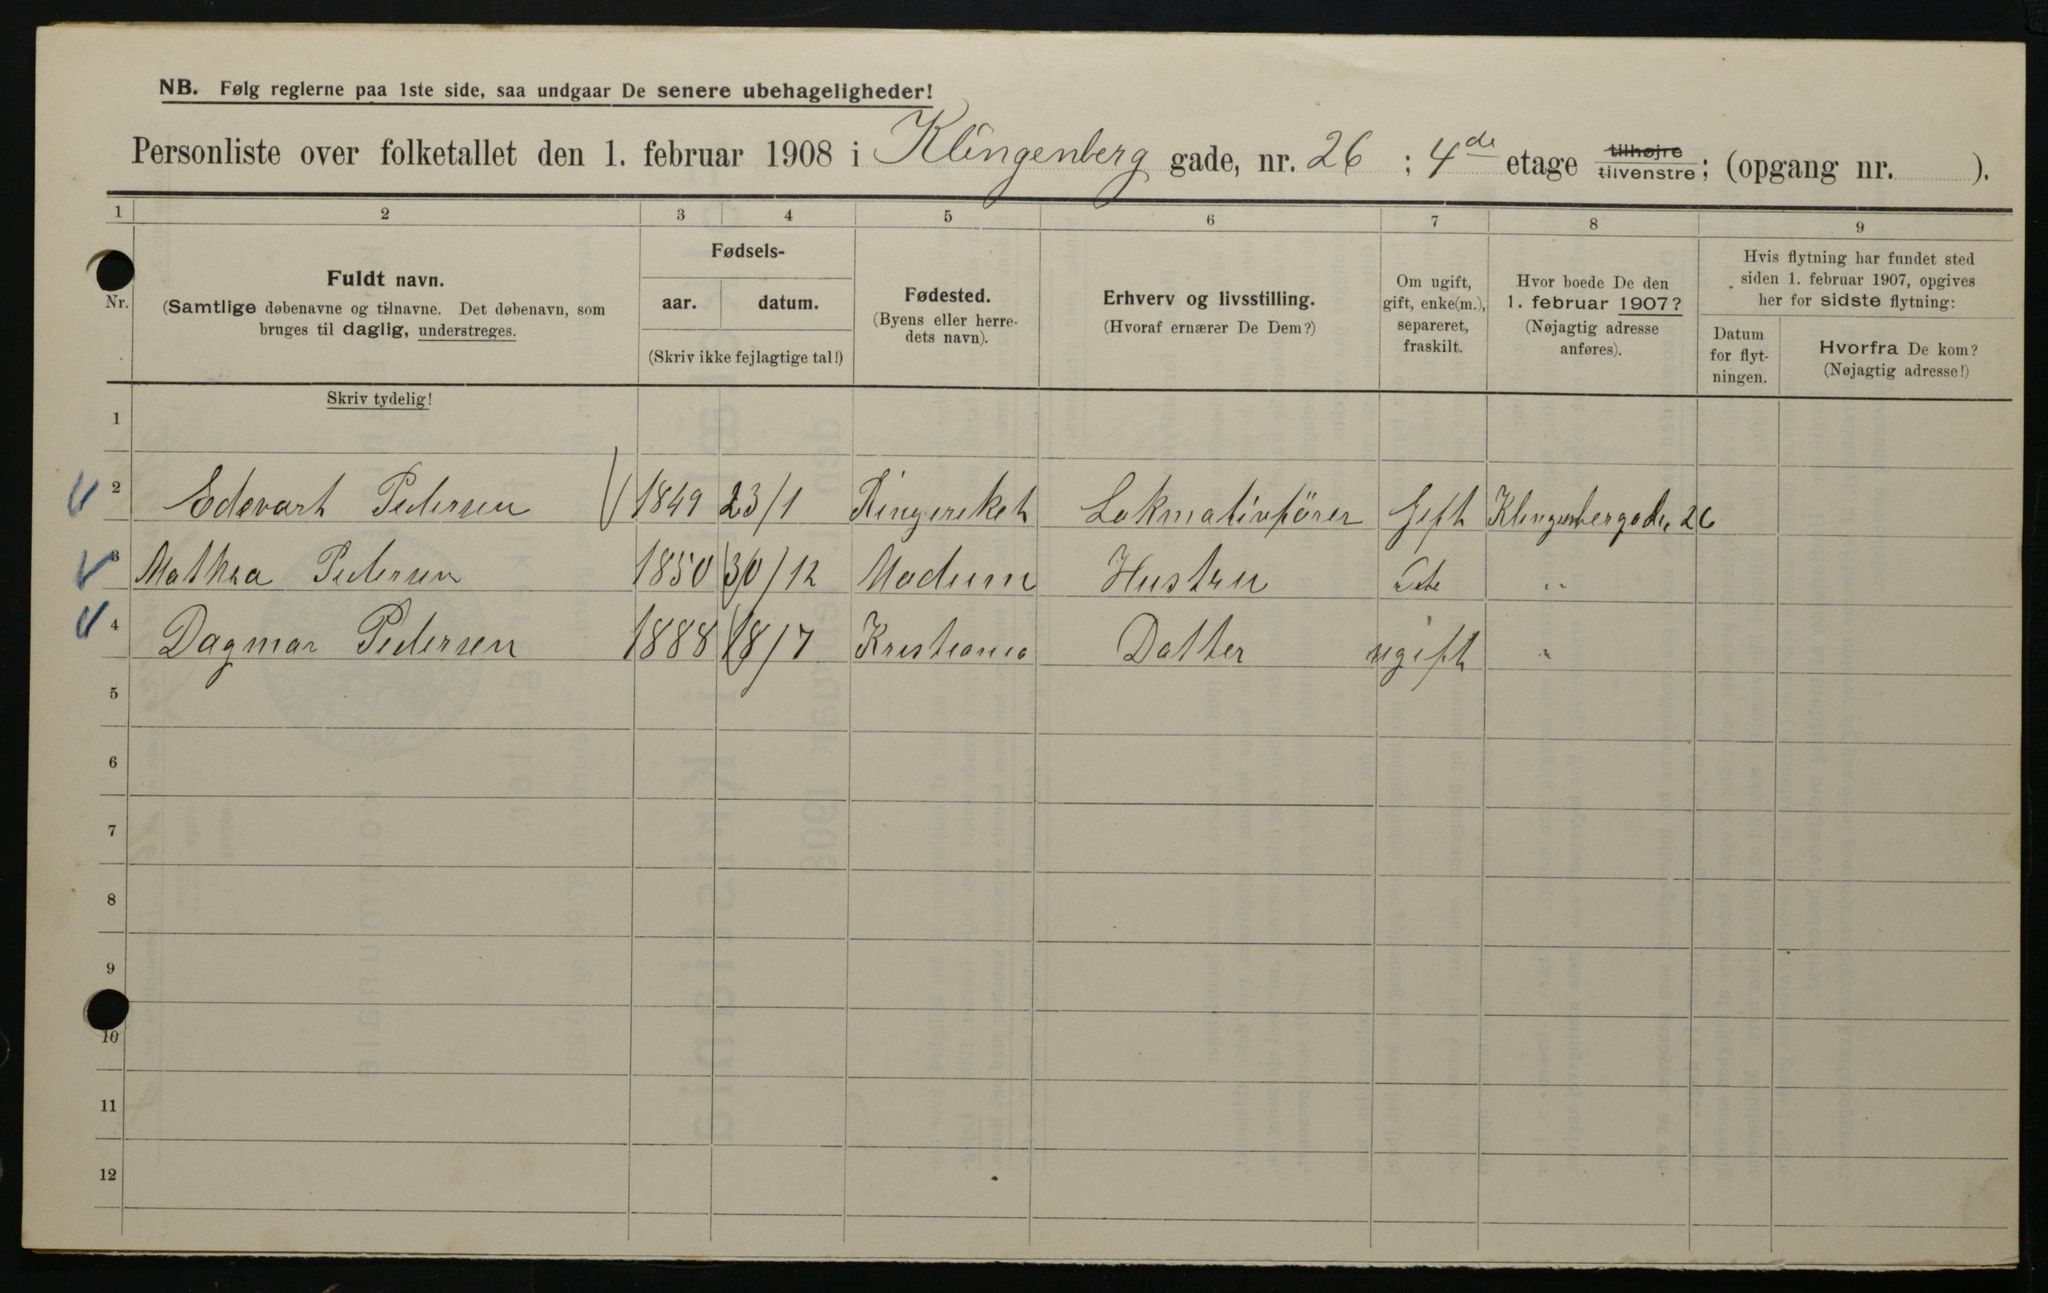 NB. Følg reglerne paa 1ste side, saa undgaar De senere ubehageligheder!
Personliste over folketallet den 1. februar 1908 i Klingenberg gade, nr. 26 ; 4de etage tilhøjre tilvenstre; (opgang nr. ).
1 2 3 4 5 6 7 8 9
Nr.
Fuldt navn.
(Samtlige døbenavne og tilnavne. Det døbenavn, som
bruges til daglig, understreges.
Skriv tydelig!
Fødsels-
aar. datum.
(Skriv ikke fejlagtige tal!)
Fødested.
(Byens eller herre-
dets navn).
Erhverv og livsstilling.
(Hvoraf ernærer De Dem?)
Om ugift,
gift, enke(m.),
separeret,
fraskilt.
Hvor boede De den
1. februar 1907?
(Nøjagtig adresse
anføres).
Hvis flytning har fundet sted
siden 1. februar 1907, opgives
her for sidste flytning:
Datum
for flyt-
ningen.
Hvorfra De kom?
(Nøjagtig adresse!)
1
2 Edevart Pedersen 1849 23/1 Ringeriket Lokmativförer Gift Klingenbergade 26
3 Mathea Pedersen 1850 30/12 Modum Hustru "
4 Dagmar Pedersen 1888 18/7 Kristiania Datter ugift "
5
6
7
8
9
10
11
12